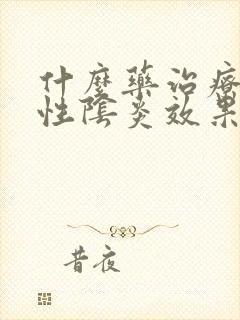 什麼藥治療
性陰炎效果
昔夜